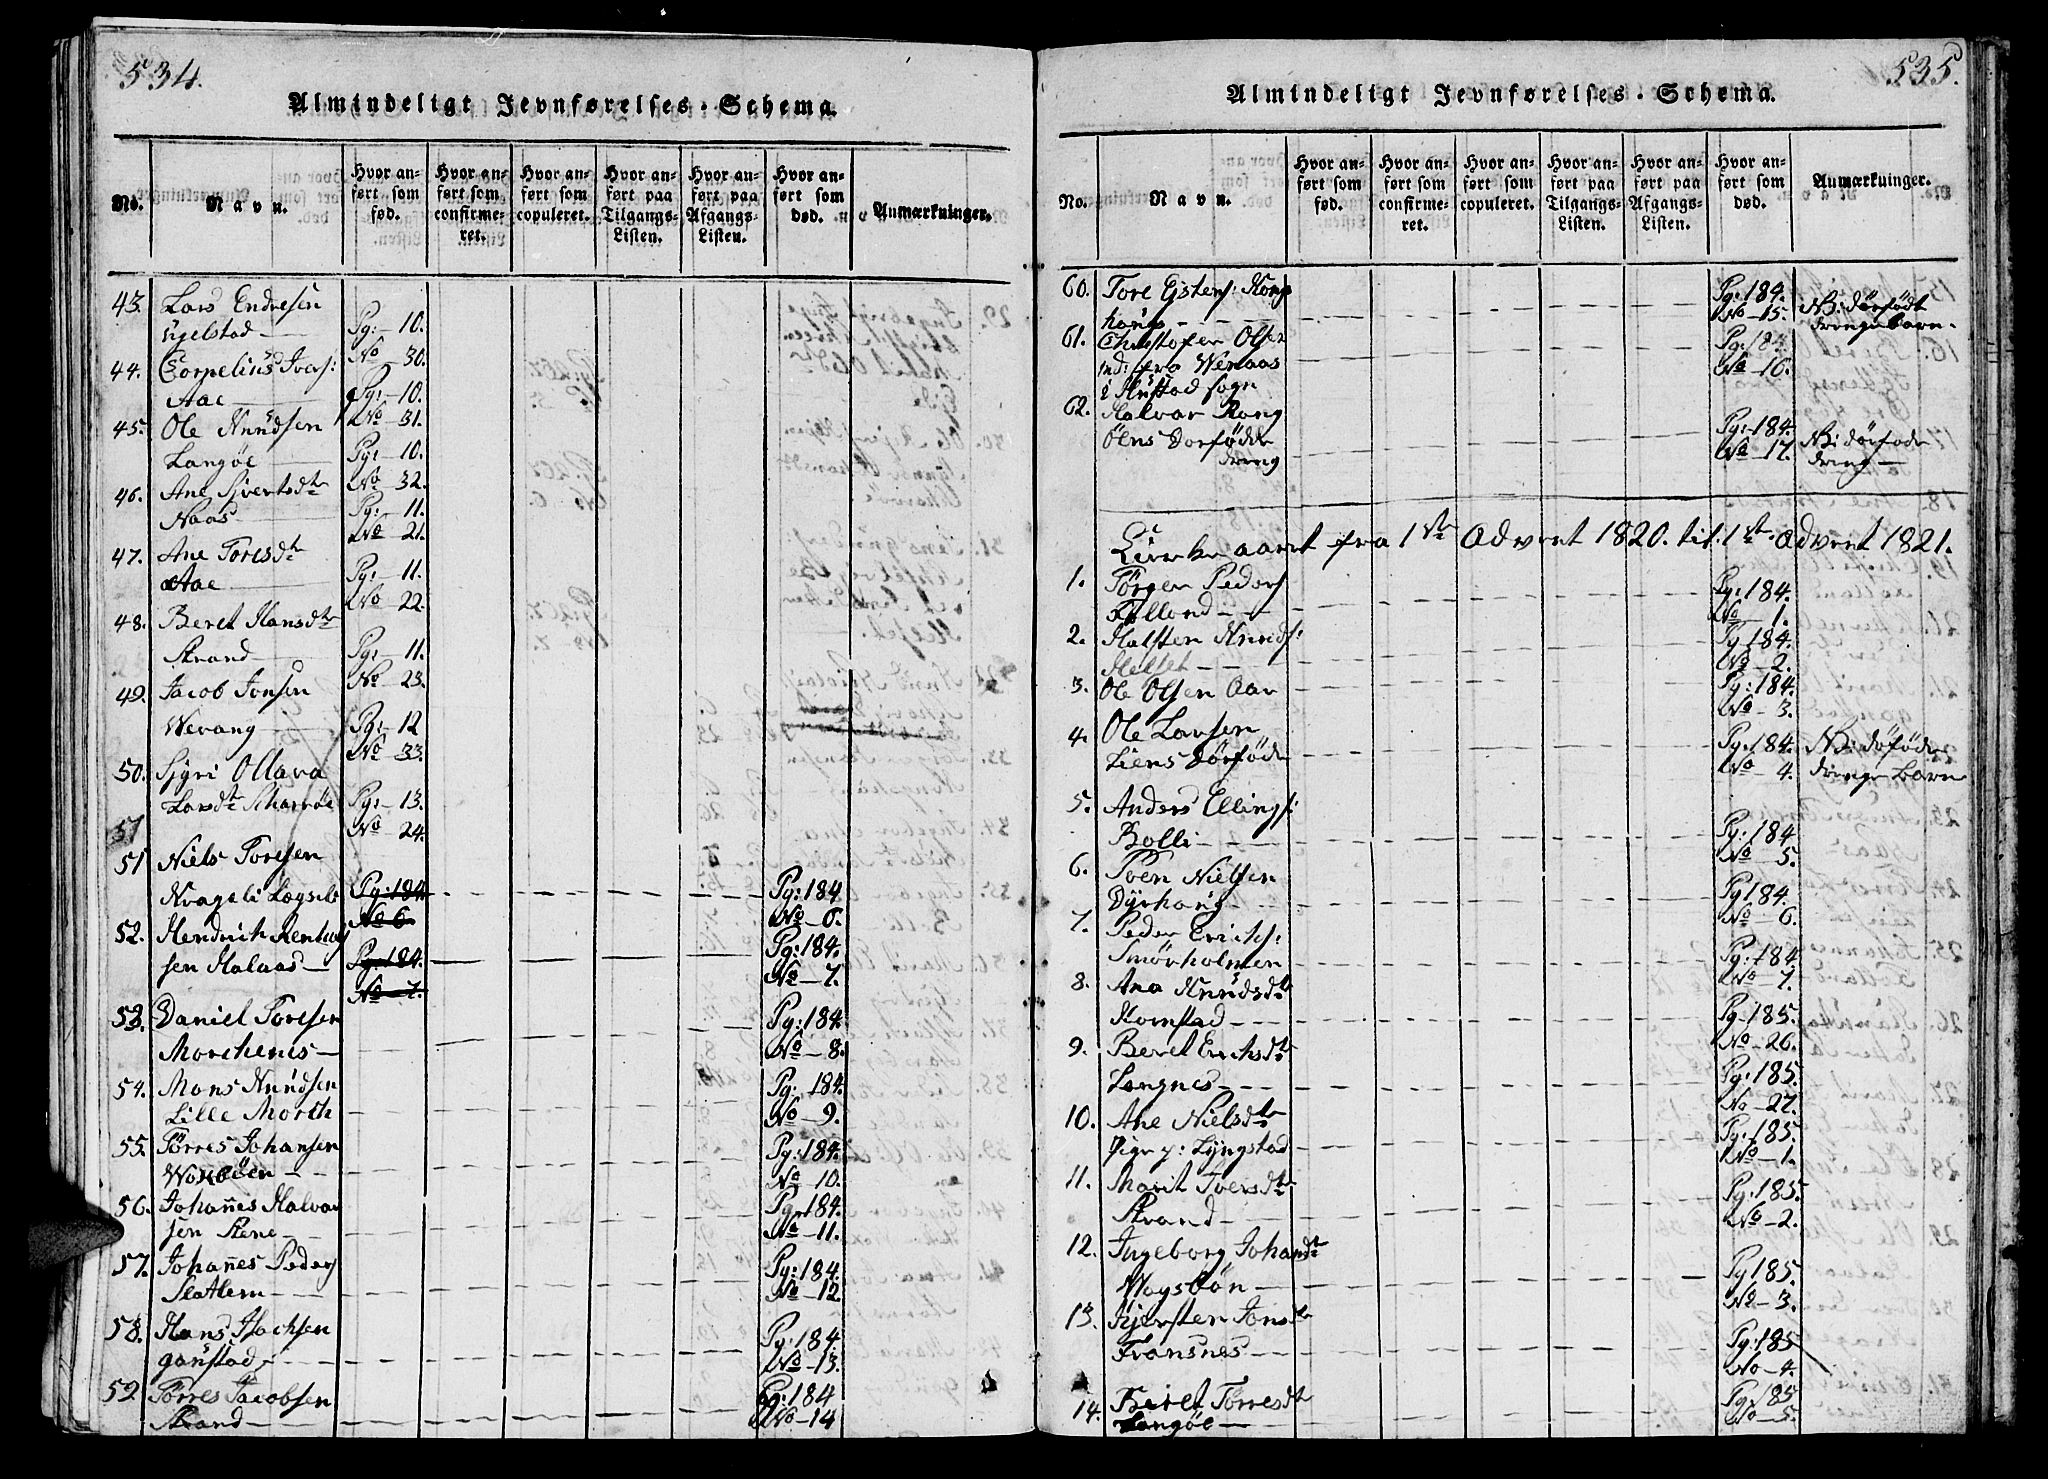 534.
Almindeligt Jevnførelses-Schema.
No.
Navn.
Hvor anført som fød.
Hvor anført som confirmeret.
Hvor anført som copuleret.
Hvor anført paa Tilgangs-Listen.
Hvor anført paa Afgangs-Listen.
Hvor anført som død.
Anmærkninger.
43. Lars Endresen
Egelstad — Pg: — 10.
No — 30.
44. Cornelius Ivers:
Aae — Pg: — 10.
No — 31.
45. Ole Knudsen
Langøe — Pg: — 10.
No — 32.
46. Ane Sjvertsdtr
Naas — Pg: — 11.
No — 21.
47. Ane Toresdtr
Aae — Pg: — 11.
No — 22.
48. Beret Hansdtr
Strand — Pg: — 11.
No — 23.
49. Jacob Jonsen
Werang — Pg: — 12
No — 33.
50. Sjgri Ollava
Larsdtr Scharsøe Pg: — 13.
No — 24.
51
51 Niels Toresen
Krageli Pg: 184. Pg: 184
No 6. No — 6.
52. Hendrich
sen Halaas — Pg: 184. Pg: 184.
No — 7. No — 7.
53. Daniel Toresen Pg: 184
Morchenes — No — 8.
54. Mons Knudsen Pg: 184.
Lille Morth No — 9.
55. Törres Johansen Pg: 184.
Woxöen — No — 10.
56. Johanes Halvor Pg 184.
sen Stene — No — 11.
57. Johanes Peders Pg: 184.
Slatlem — No — 12.
58. Hans Isachsen Pg: 184.
Gaustad — No — 13.
59. Törres Jacobsen Pg: 184
Strand — No — 14
535.
Almindeligt Jevnførelses-Schema.
No.
Navn.
Hvor anført som fød.
Hvor anført som confirmeret.
Hvor anført som copuleret.
Hvor anført paa Tilgangs-Listen.
Hvor anført paa Afgangs-Listen.
Hvor anført som død.
Anmærkninger.
60. Tore Ejstens: Kongs
haug — Pg: 184. NB: dödfödt
No — 15. drengebarn.
61. Christofer Olsen Pg: 184
fra Wenaas No — 16.
i Hustad sogn
62. Halvar Kong
öens Dödfödde Pg: 184. NB: dödfödt
dreng No — 17. dreng —
Kirkeaaret fra 1ste Advent 1820. til 1ste Advent 1821.
1. Törger Peders Pg: 184.
Tolland — No — 1.
2. Halsten Knuds: Pg 184.
Melset — No — 2.
3. Ole Olsen Aae Pg: 184.
No — 3.
4. Ole Larsen Pg: 184. NB: dödfödt
Liens Dödföde No — 4. drengebarn
5. Anders Ellings: Pg: 184
Bolli — No — 5.
6. Poen Nielsen Pg 184.
Dyrhaug No — 6.
7. Peder Erichs: Pg: 184
Smörholmen No — 7.
8. Ana Knudsdtr Pg — 185.
Kornstad — No — 26.
9. Beret Erichsdtr Pg: 185.
Langnes — No — 27.
10. Ane Nielsdtr Pg: 185.
Pige p: Lyngstad No — 1.
11. Marit Iversdtr Pg: 185.
Strand — No — 2.
12. Ingeborg Johansdtr Pg 185.
Wogsbön — No — 3.
13. Kjersten Jonsdtr Pg: 185
Fransnes — No — 4.
14. Beret Törresdtr Pg: 185
Langöe — No — 5.